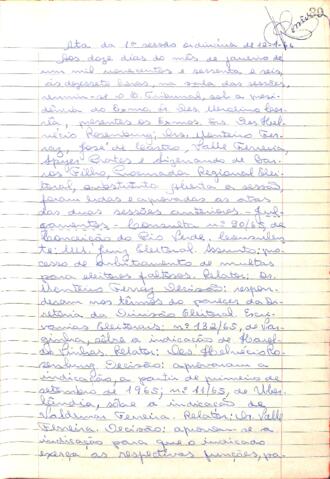 Ata da 1ª sessão ordinária de 12-1-66
Aos doze dias do mês de janeiro de
um mil novecentos e sessenta e seis,
às dezessete horas, na sala das sessões,
reuniu-se o E. Tribunal, sob a presi-
dência do Exmo. Sr. Des. Costa,
presentes os Exmos. Srs. Des. Hel-
vécio Rosenburg; Drs. Monteiro Fer-
raz, José de Castro, Valle Ferreira,
Prates e de Bar-
ros Filho, Procurador Regional Elei-
toral, substituto. Aberta a sessão,
foram lidas e aprovadas as atas
das duas sessões anteriores. - Jul-
gamentos - Consulta nº 20/65, de
Conceição do Rio Verde. Consulen-
te: MM. Juiz Eleitoral. Assunto: pro-
cesso de arbitramento de multas
para eleitores faltosos. Relator: Dr.
Monteiro Ferraz. Decisão: respon-
deram nos têrmos do parecer da Di-
retoria da Divisão Eleitoral. Escri-
vanias Eleitorais: nº 132/65, de Var-
ginha, sôbre a indicação de
Relator: Des. Helvécio Ro-
senburg. Decisão: aprovaram a
indicação, a partir de primeiro de
setembro de 1965; nº 11/65, de Uber-
lândia, sôbre a indicação de
Valdemar Ferreira. Relator: Dr. Valle
Ferreira. Decisão: aprovaram a
indicação para que o indicado
exerça as respectivas funções, pa-